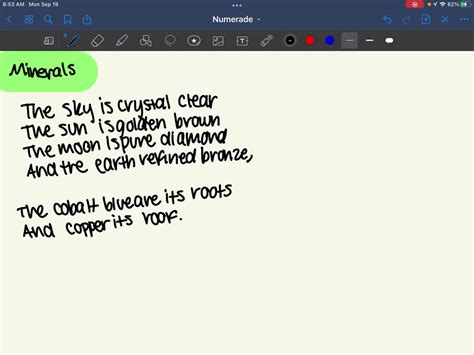 8:53 AM Mon Sep 19
62%
Numerade
Minerals
The sky is crystal clear
The sun is golden brown
The moon is pure diamond
And the earth refined bronze,
The cobalt blue are its roots
And copper its roof.